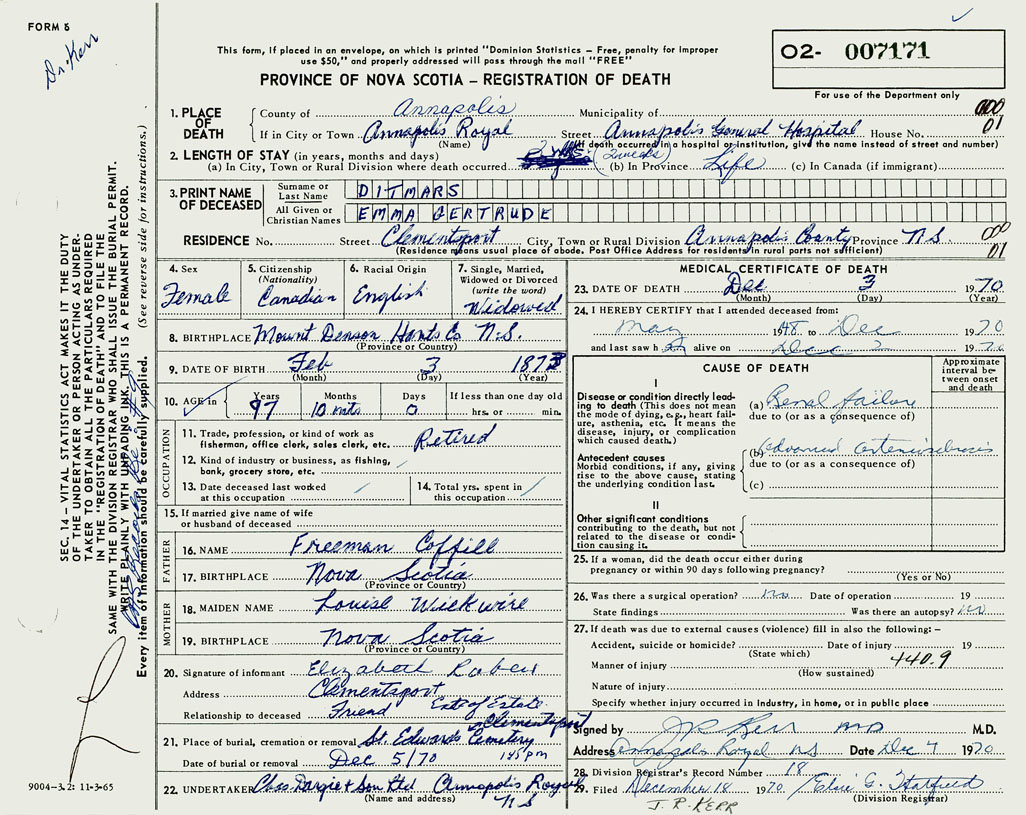 FORM 6
Dr. Kerr
This form, if placed in an envelope, on which is printed "Dominion Statistics – Free, penalty for improper
use $50," and properly addressed will pass through the mail "FREE"
PROVINCE OF NOVA SCOTIA – REGISTRATION OF DEATH
02- 007171
For use of the Department only
1. PLACE OF DEATH
County of Annapolis Municipality of 000
If in City or Town Annapolis Royal Street Annapolis General Hospital House No. 01
(Name) (If death occurred in a hospital or institution, give the name instead of street and number)
2. LENGTH OF STAY (in years, months and days)
(a) In City, Town or Rural Division where death occurred (2 weeks) (b) In Province Life (c) In Canada (if immigrant)
3. PRINT NAME OF DECEASED
Surname or Last Name DITMARS
All Given or Christian Names EMMA GERTRUDE
RESIDENCE No. Street Clementsport City, Town or Rural Division Annapolis County Province N.S. 000
(Residence means usual place of abode. Post Office Address for residents in rural parts not sufficient) 01
4. Sex Female
5. Citizenship (Nationality) Canadian
6. Racial Origin English
7. Single, Married, Widowed or Divorced (write the word) Widowed
8. BIRTHPLACE Mount Denson Hants Co N.S.
(Province or Country)
9. DATE OF BIRTH Feb 3 1873
(Month) (Day) (Year)
10. AGE in Years Months Days If less than one day old
97 10 mts 0 hrs. or min.
OCCUPATION
11. Trade, profession, or kind of work as fisherman, office clerk, sales clerk, etc. Retired
12. Kind of industry or business, as fishing, bank, grocery store, etc.
13. Date deceased last worked at this occupation
14. Total yrs. spent in this occupation
15. If married give name of wife or husband of deceased
FATHER
16. NAME Freeman Coffill
17. BIRTHPLACE Nova Scotia
(Province or Country)
MOTHER
18. MAIDEN NAME Louise Wickwire
19. BIRTHPLACE Nova Scotia
(Province or Country)
20. Signature of informant Elizabeth
Address Clementsport
Relationship to deceased Friend Ext of Estate
21. Place of burial, cremation or removal St. Edwards Cemetery Clementsport
Date of burial or removal Dec 5/70 1:45 pm
22. UNDERTAKER Chas Dargie & Son Ltd Annapolis Royal
(Name and address) N S
MEDICAL CERTIFICATE OF DEATH
23. DATE OF DEATH Dec 3 1970
(Month) (Day) (Year)
24. I HEREBY CERTIFY that I attended deceased from:
May 1948 to Dec 1970
and last saw her alive on Dec 2 1970
CAUSE OF DEATH
Approximate interval between onset and death
I
Disease or condition directly leading to death (This does not mean the mode of dying, e.g., heart failure, asthenia, etc. It means the disease, injury, or complication which caused death.)
(a) Renal failure
due to (or as a consequence of)
Antecedent causes
Morbid conditions, if any, giving rise to the above cause, stating the underlying condition last.
(b) advanced arteriosclerosis
due to (or as a consequence of)
(c)
II
Other significant conditions
contributing to the death, but not related to the disease or condition causing it.
25. If a woman, did the death occur either during
pregnancy or within 90 days following pregnancy?
(Yes or No)
26. Was there a surgical operation? no Date of operation 19
State findings Was there an autopsy? no
27. If death was due to external causes (violence) fill in also the following: –
Accident, suicide or homicide? Date of injury 19
(State which)
Manner of injury 440.9
(How sustained)
Nature of injury
Specify whether injury occurred in industry, in home, or in public place
Signed by J R Kerr MD M.D.
Address Annapolis Royal NS Date Dec 7 1970
28. Division Registrar's Record Number 18
29. Filed December 18 1970 G. Hatfield
(Division Registrar)
J. R. KERR
SEC. 14 – VITAL STATISTICS ACT MAKES IT THE DUTY
OF THE UNDERTAKER OR PERSON ACTING AS UNDER-
TAKER TO OBTAIN ALL THE PARTICULARS REQUIRED
IN THE "REGISTRATION OF DEATH" AND TO FILE THE
SAME WITH THE DIVISION REGISTRAR WHO SHALL ISSUE THE BURIAL PERMIT.
WRITE PLAINLY WITH UNFADING INK. THIS IS A PERMANENT RECORD.
Every item of information should be carefully supplied. (See reverse side for instructions.)
9004-3.2: 11-3-65